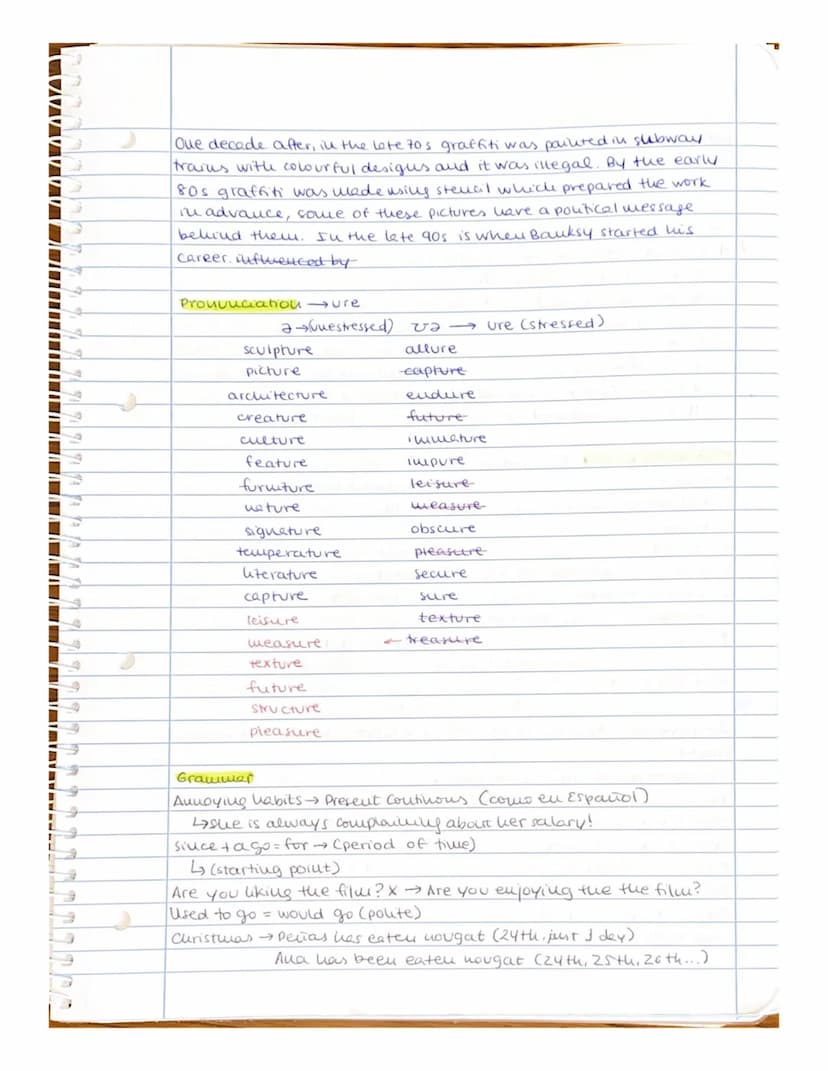 One decade after, in the late 70s graffiti was painted in subway
trains with colourful designs and it was illegal. By the early
80s graffiti was made using stencil which prepared the work
in advance, some of these pictures have a political message
behind them. In the late 90s is when Banksy started his
career. influenced by
Pronunciation → ure
ə → (unestressed) ʊə → ure (stressed)
sculpture allure
picture capture
architecture endure
creature future
culture immature
feature impure
furniture leisure
nature measure
signature obscure
temperature pleasure
literature secure
capture sure
leisure texture
measure ← treasure
texture
future
structure
pleasure
Grammar
Annoying habits → Present Continous (como en Español)
↳ she is always complaining about her salary!
Since + ago = for → (period of time)
↳ (starting point)
Are you liking the film? x → Are you enjoying the the film?
Used to go = would go (polite)
Christmas → Peñas has eaten nougat (24th, just 1 day)
Ana has been eaten nougat (24th, 25th, 26th...)